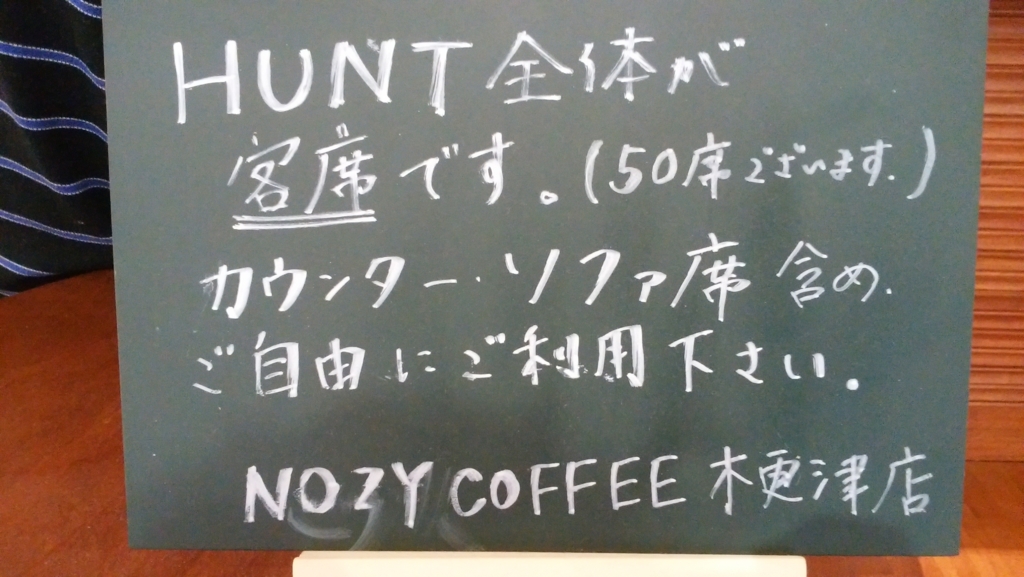 HUNT 全体が
客席です。(50席ございます.)
カウンター・ソファ席 含め.
ご自由にご利用下さい.
NOZY COFFEE 木更津店